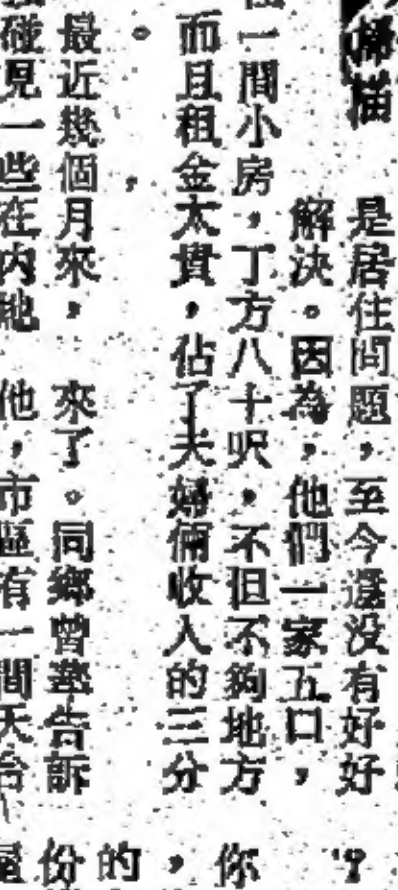 掃描
是居住問題，至今還没有好好
解決。因為，他們一家五口，
一間小房，丁方八十呎，不但不夠地方
而且租金太貴，佔了夫婦倆收入的三分
。
最近幾個月來，
碰見一些在內地
來了。同鄉曾告訴
他，市區有一間天台
？
你
，
的
份